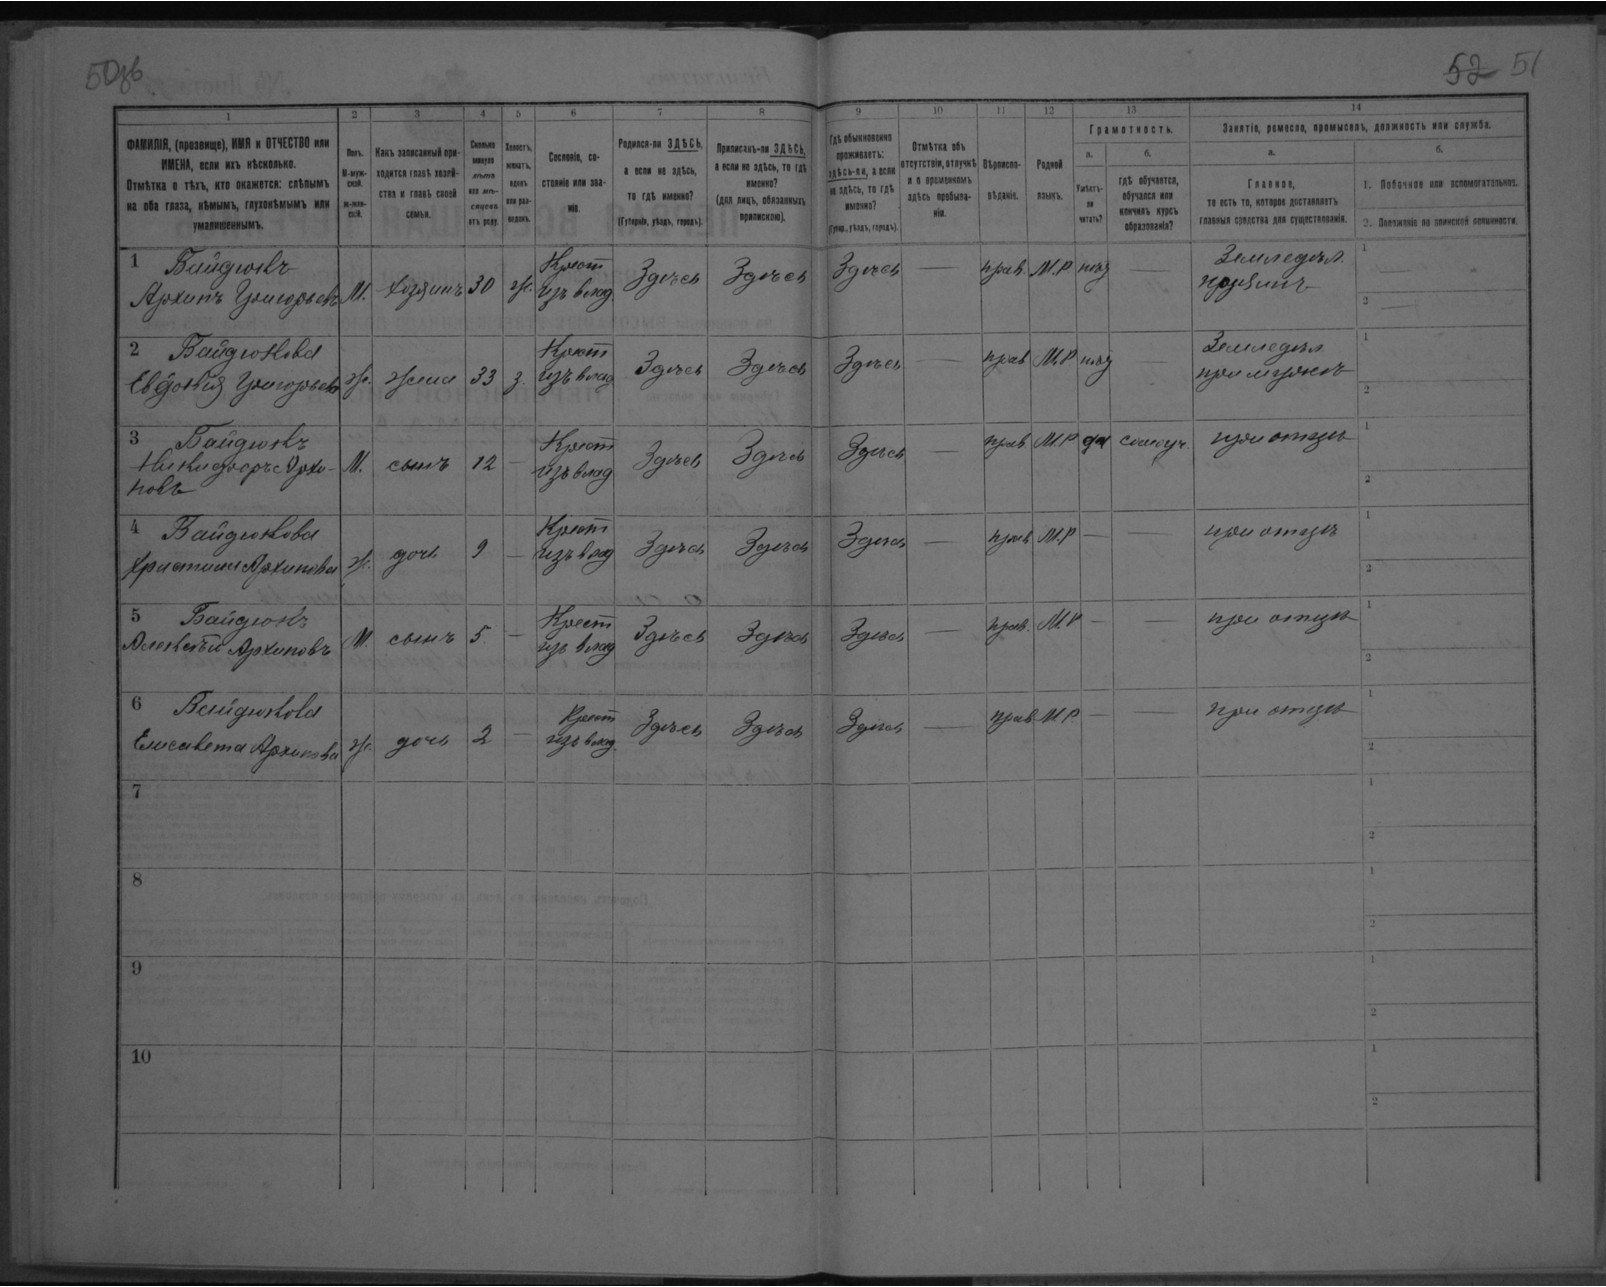 50об
52 51
1 2 3 4 5 6 7 8 9 10 11 12 13 14
ФАМИЛІЯ, (прозвище), ИМЯ и ОТЧЕСТВО или
ИМЕНА, если ихъ нѣсколько.
Отмѣтка о тѣхъ, кто окажется: слѣпымъ
на оба глаза, нѣмымъ, глухонѣмымъ или
умалишеннымъ.
Полъ.
М-муж-
ской.
ж-жен-
скій.
Какъ записанный при-
ходится главѣ хозяй-
ства и главѣ своей
семьи.
Сколько
минуло
лѣтъ
или мѣ-
сяцевъ
отъ роду.
Холостъ,
женатъ,
вдовъ
или раз-
веденъ.
Сословіе, со-
стояніе или зва-
ніе.
Родился-ли ЗДѢСЬ,
а если не здѣсь,
то гдѣ именно?
(Губернія, уѣздъ, городъ).
Приписанъ-ли ЗДѢСЬ,
а если не здѣсь, то гдѣ
именно?
(для лицъ, обязанныхъ
припискою).
Гдѣ обыкновенно
проживаетъ:
здѣсь-ли, а если
не здѣсь, то гдѣ
именно?
(Губер., уѣздъ, городъ).
Отмѣтка объ
отсутствіи, отлучкѣ
и о временномъ
здѣсь пребыва-
ніи.
Вѣроиспо-
вѣданіе.
Родной
языкъ.
Грамотность.
а.
Умѣетъ-
ли
читать?
б.
гдѣ обучается,
обучался или
кончилъ курсъ
образованія?
Занятіе, ремесло, промыселъ, должность или служба.
а.
Главное,
то есть то, которое доставляетъ
главныя средства для существованія.
б.
1. Побочное или вспомогательное.
2. Положеніе по воинской повинности.
1 Байдюкъ Крест Земледѣл.
Архипъ Григорьевъ М. Хозяинъ 30 ж. изъ влад Здѣсь Здѣсь Здѣсь — прав М.Р нѣт — хозяинъ
2 Байдюкова Крест Земледѣл.
Евдокия Григорьева ж. жена 33 з. изъ влад Здѣсь Здѣсь Здѣсь — прав М.Р нѣт — при мужѣ
3 Байдюкъ Крест
Никифоръ Архи- М. сынъ 12 — изъ влад Здѣсь Здѣсь Здѣсь — прав М.Р да самоуч. при отцѣ
повъ
4 Байдюкова Крест
Христина Архипова ж. дочь 9 — изъ влад Здѣсь Здѣсь Здѣсь — прав М.Р — — при отцѣ
5 Байдюкъ Крест
Алексѣй Архиповъ М. сынъ 5 — изъ влад Здѣсь Здѣсь Здѣсь — прав. М.Р — — при отцѣ
6 Байдюкова Крест
Елисавета Архипова ж. дочь 2 — изъ влад. Здѣсь Здѣсь Здѣсь — прав М.Р — — при отцѣ
7
8
9
10